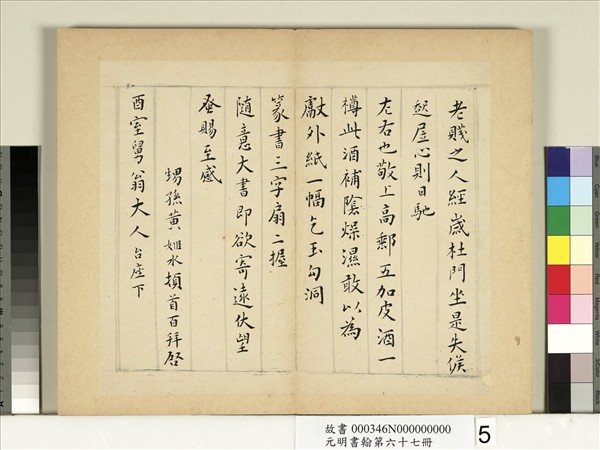 老賤之人經歲杜門坐是失候
起居心則日馳
左右也敬上高郵五加皮酒一
樽此酒補陰燥濕敢以為
獻外紙一幅乞玉勾洞
篆書三字扇二握
隨意大書即欲寄遠伏望
蚤賜至感
甥孫黃姬水頓首百拜啓
酉室舅翁大人台座下
故書 000346N000000000
元明書翰第六十七冊
5